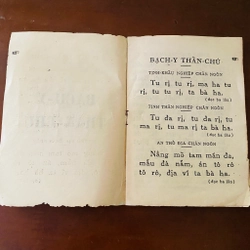 BẠCH-Y THẦN-CHÚ
TỊNH-KHẨU NGHIỆP CHÂN NGÔN
Tu rị tu rị, ma ha tu
rị, tu tu rị, ta bà ha.
(đọc ba lần)
TỊNH THÂN NGHIỆP CHÂN NGÔN
Tu đa rị, tu đa rị, tu
ma rị, tu ma rị ta bà ha.
(đọc ba lần)
AN THỔ ĐỊA CHÂN NGÔN
Nẵng mồ tam mãn đa,
mẫu đà nẫm, án tô rô
tô rô, địa vĩ ta bà ha.
(đọc ba lần)